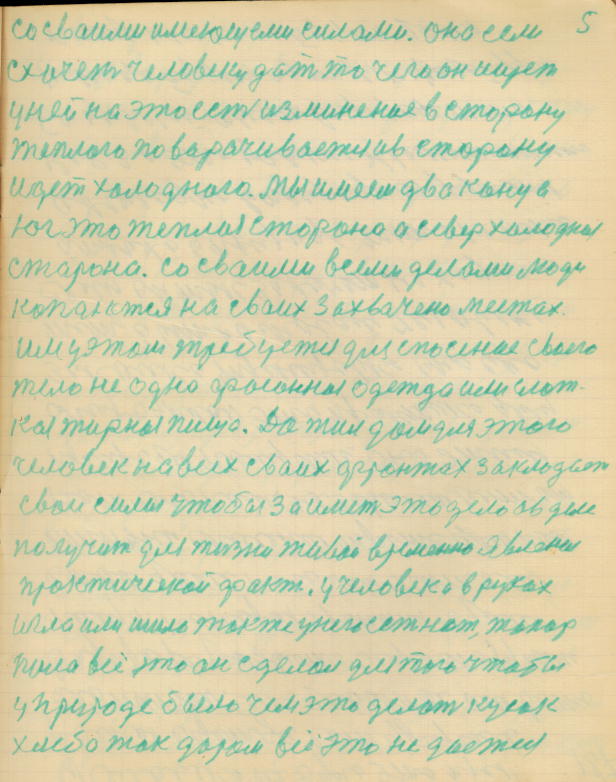 5
со сваими имеющеми силами. она если
схочет человеку дать то чего он ищет
у ней на это есть изминение в сторону
теплого поварачивается и в сторону
идет холодного. Мы имеем два конца
юг это теплая сторона а север холодная
старона. со сваими всеми делами люди
копаются на сваих захвачено местах.
им у этом требуется для спосение своего
тело не одна фасонная одежда или слат-
кая жирная пища. Да жил дом для этого
человек на всех сваих фронтах закладает
свои силы чтобы заиметь это дело в деле
получит для жизни живой временно явление
практической факт. у человека в руках
игла или шило также у него есть нож, топор
пила всё это он сделал для того чтобы
у природе было чем это делать кусок
хлеба так даром всё это не дается